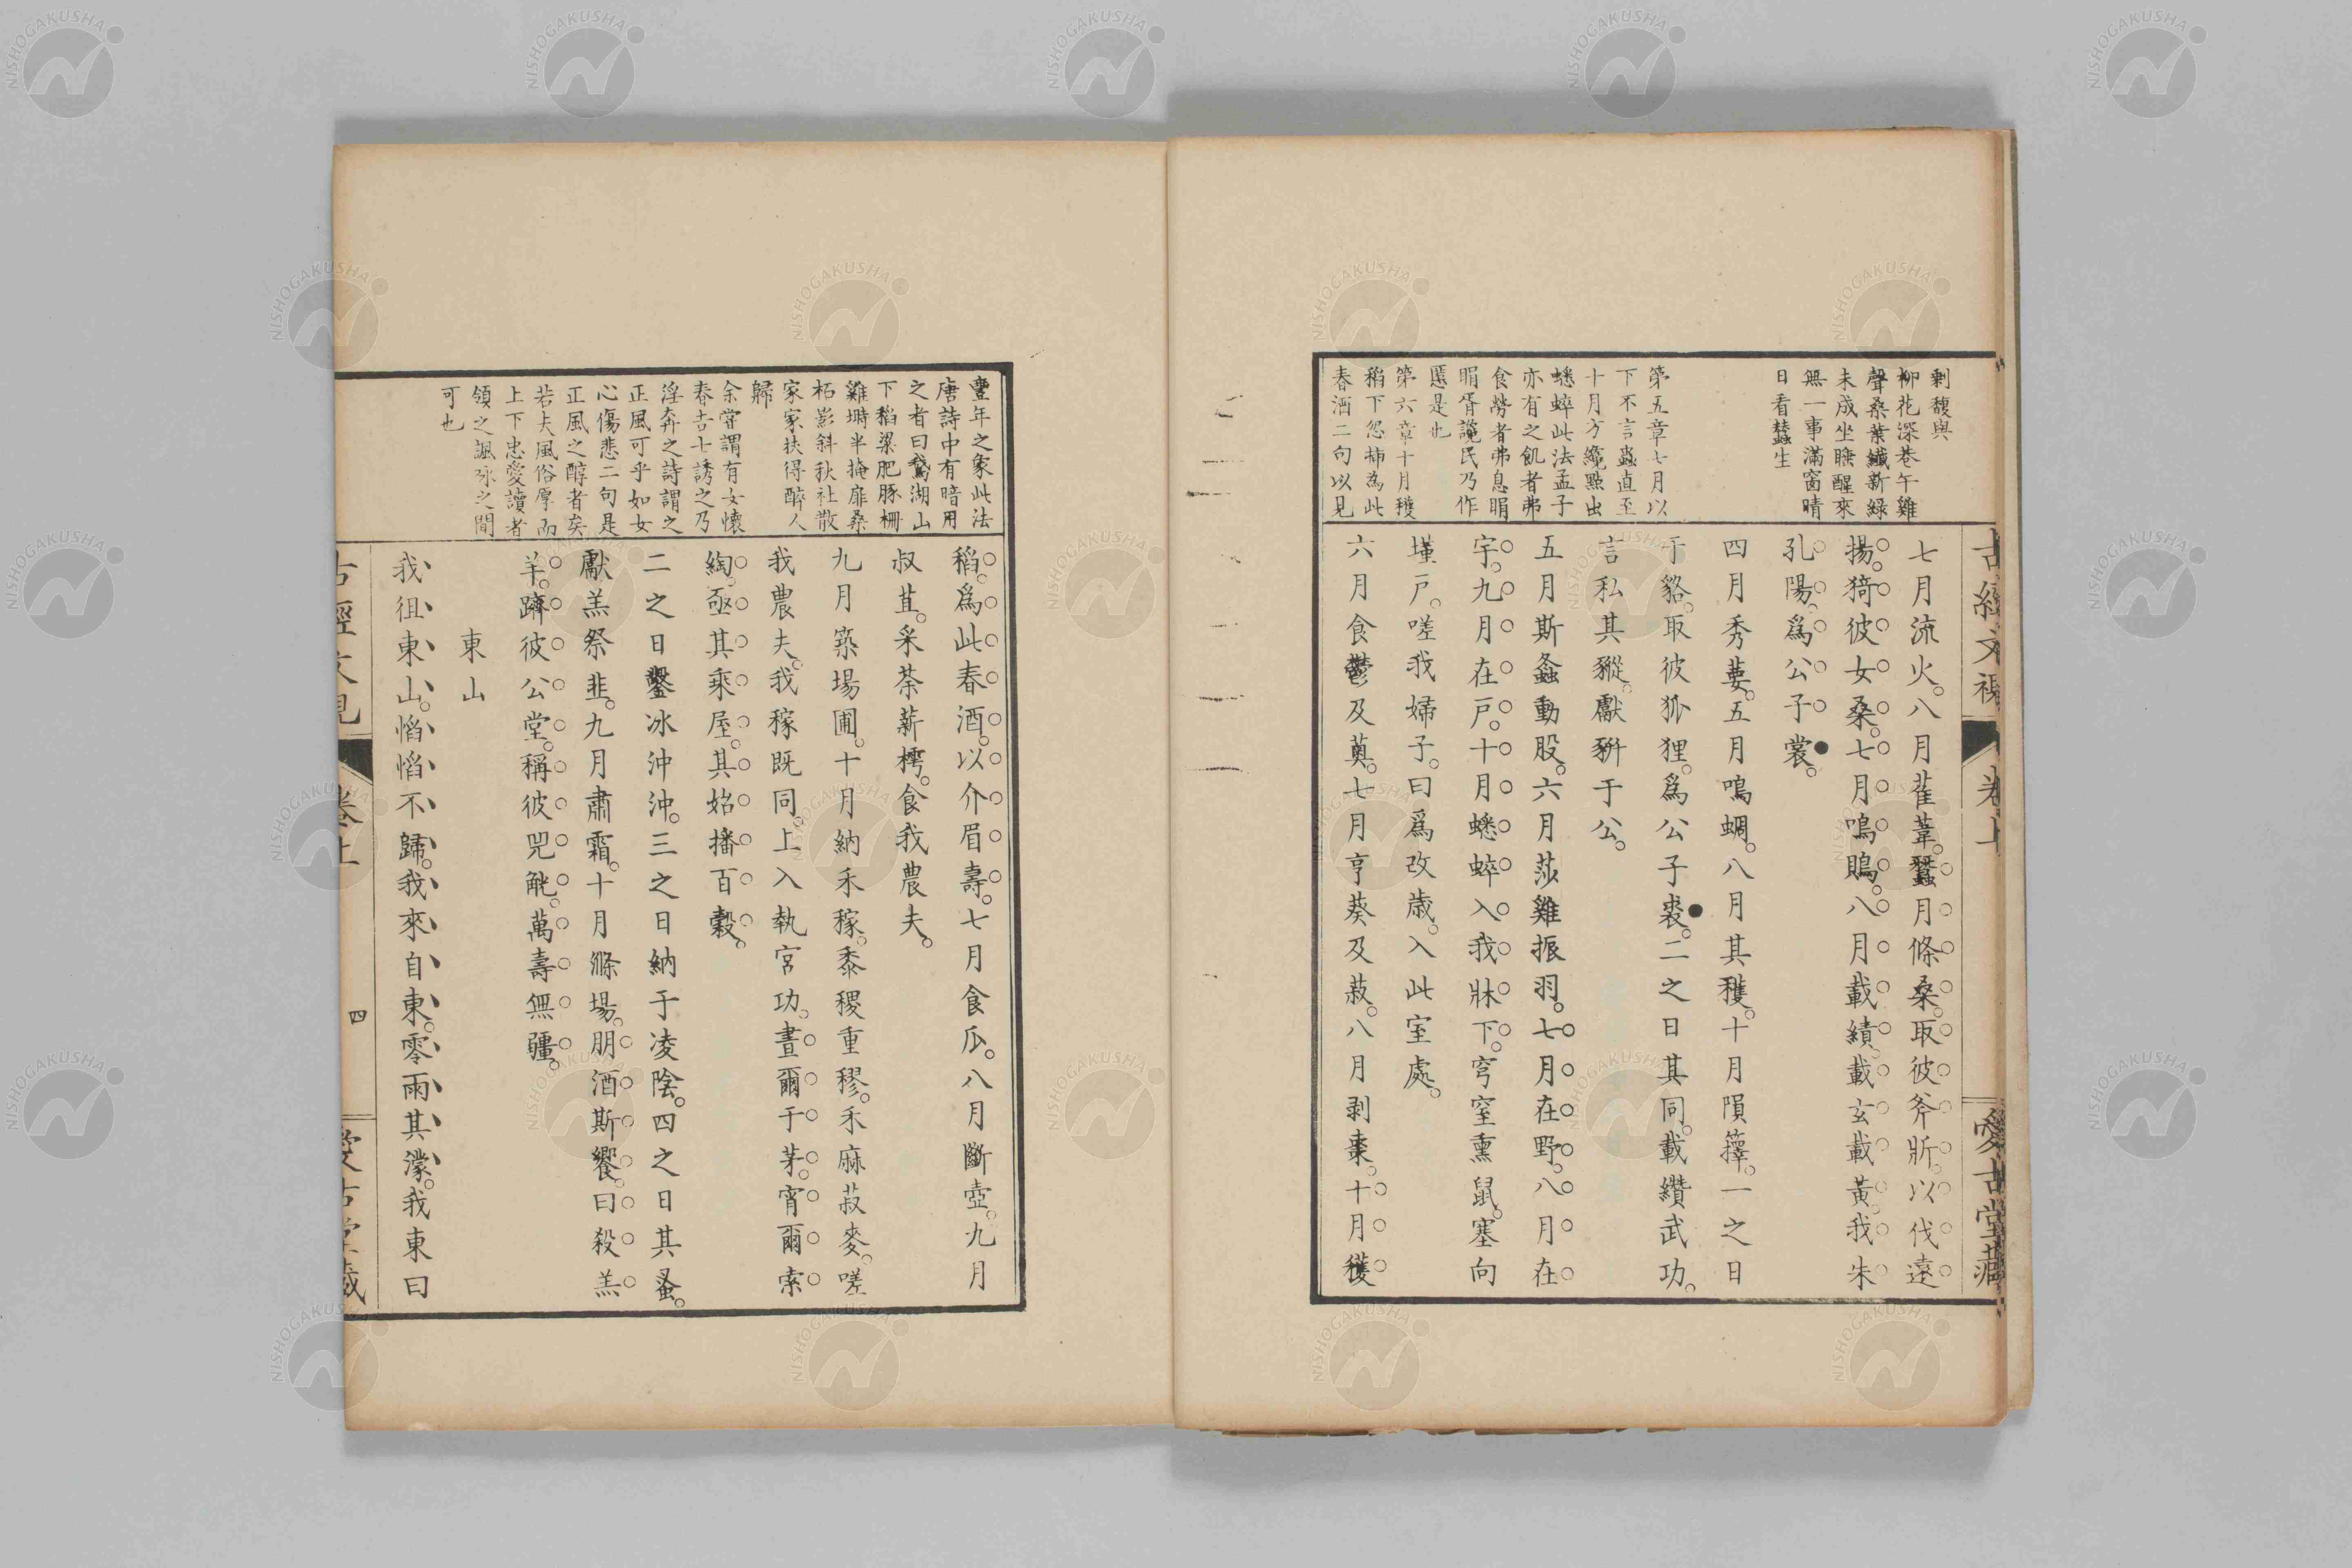 古經文
卷上
愛古堂藏
剩馥與
柳花深巷午雞
聲桑葉纎新綠
未成坐睡醒來
無一事滿窗晴
日看蠶生
第五章七月以
下不言蟲直至
十月方纔點出
蟋蟀此法孟子
亦有之飢者弗
食勞者弗息睊
睊胥讒民乃作
慝是也
第六章十月穫
稻下忽插為此
春酒二句以見
七月流火。八月萑葦。蠶月條桑。取彼斧斨。以伐遠
揚。猗彼女桑。七月鳴鵙。八月載績。載玄載黃。我朱
孔陽。爲公子裳。
四月秀葽。五月鳴蜩。八月其穫。十月隕蘀。一之日
于貉。取彼狐狸。爲公子裘。二之日其同。載纘武功。
言私其豵。獻豜于公。
五月斯螽動股。六月莎雞振羽。七月在野。八月在
宇。九月在戸。十月蟋蟀入我牀下。穹窒熏鼠。塞向
墐戸。嗟我婦子。曰爲改歲。入此室處。
六月食鬱及薁。七月亨葵及菽。八月剥棗。十月穫
豐年之象此法
唐詩中有暗用
之者曰鵝湖山
下稻粱肥豚柵
雞塒半掩扉桑
柘影斜秋社散
家家扶得醉人
歸
余嘗謂有女懷
春吉士誘之乃
淫奔之詩謂之
正風可乎如女
心傷悲二句是
正風之醇者矣
若夫風俗厚而
上下忠愛讀者
領之諷咏之間
可也
稻。爲此春酒。以介眉壽。七月食瓜。八月斷壺。九月
叔苴。采荼薪樗。食我農夫。
九月築場圃。十月納禾稼。黍稷重穋。禾麻菽麥。嗟
我農夫。我稼既同。上入執宮功。晝爾于茅。宵爾索
綯。亟其乘屋。其始播百穀。
二之日鑿冰沖沖。三之日納于凌陰。四之日其蚤。
獻羔祭韭。九月肅霜。十月滌場。朋酒斯饗。曰殺羔
羊。躋彼公堂。稱彼兕觥。萬壽無疆。
東山
我徂東山。慆慆不歸。我來自東。零雨其濛。我東曰
四
NISHOGAKUSHA